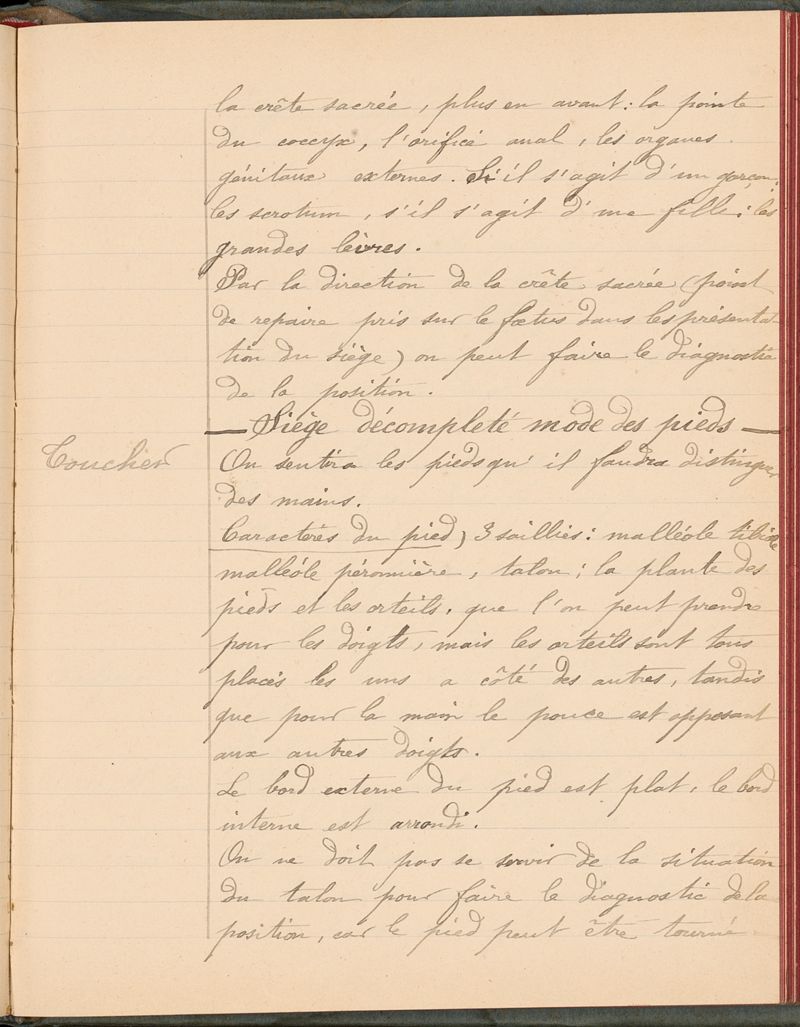 la crête sacrée, plus en avant : la pointe
du coccyx, l'orifice anal, les organes
génitaux externes. S'il s'agit d'un garçon,
les scrotum, s'il s'agit d'une fille : les
grandes lèvres.
Par la direction de la crête sacrée (point
de repaire pris sur le fœtus dans les présenta-
tion du siège) on peut faire le diagnostic
de la position.
— Siège décompleté mode des pieds —
Toucher
On sentira les pieds qu'il faudra distinguer
des mains.
Caractères du pied) 3 saillies : malléole tibiale
malléole péronière, talon ; la plante des
pieds et les orteils, que l'on peut prendre
pour les doigts, mais les orteils sont tous
placés les uns a côté des autres, tandis
que pour la main le pouce est opposant
aux autres doigts.
Le bord externe du pied est plat, le bord
interne est arrondi.
On ne doit pas se servir de la situation
du talon pour faire le diagnostic de la
position, car le pied peut être tourné